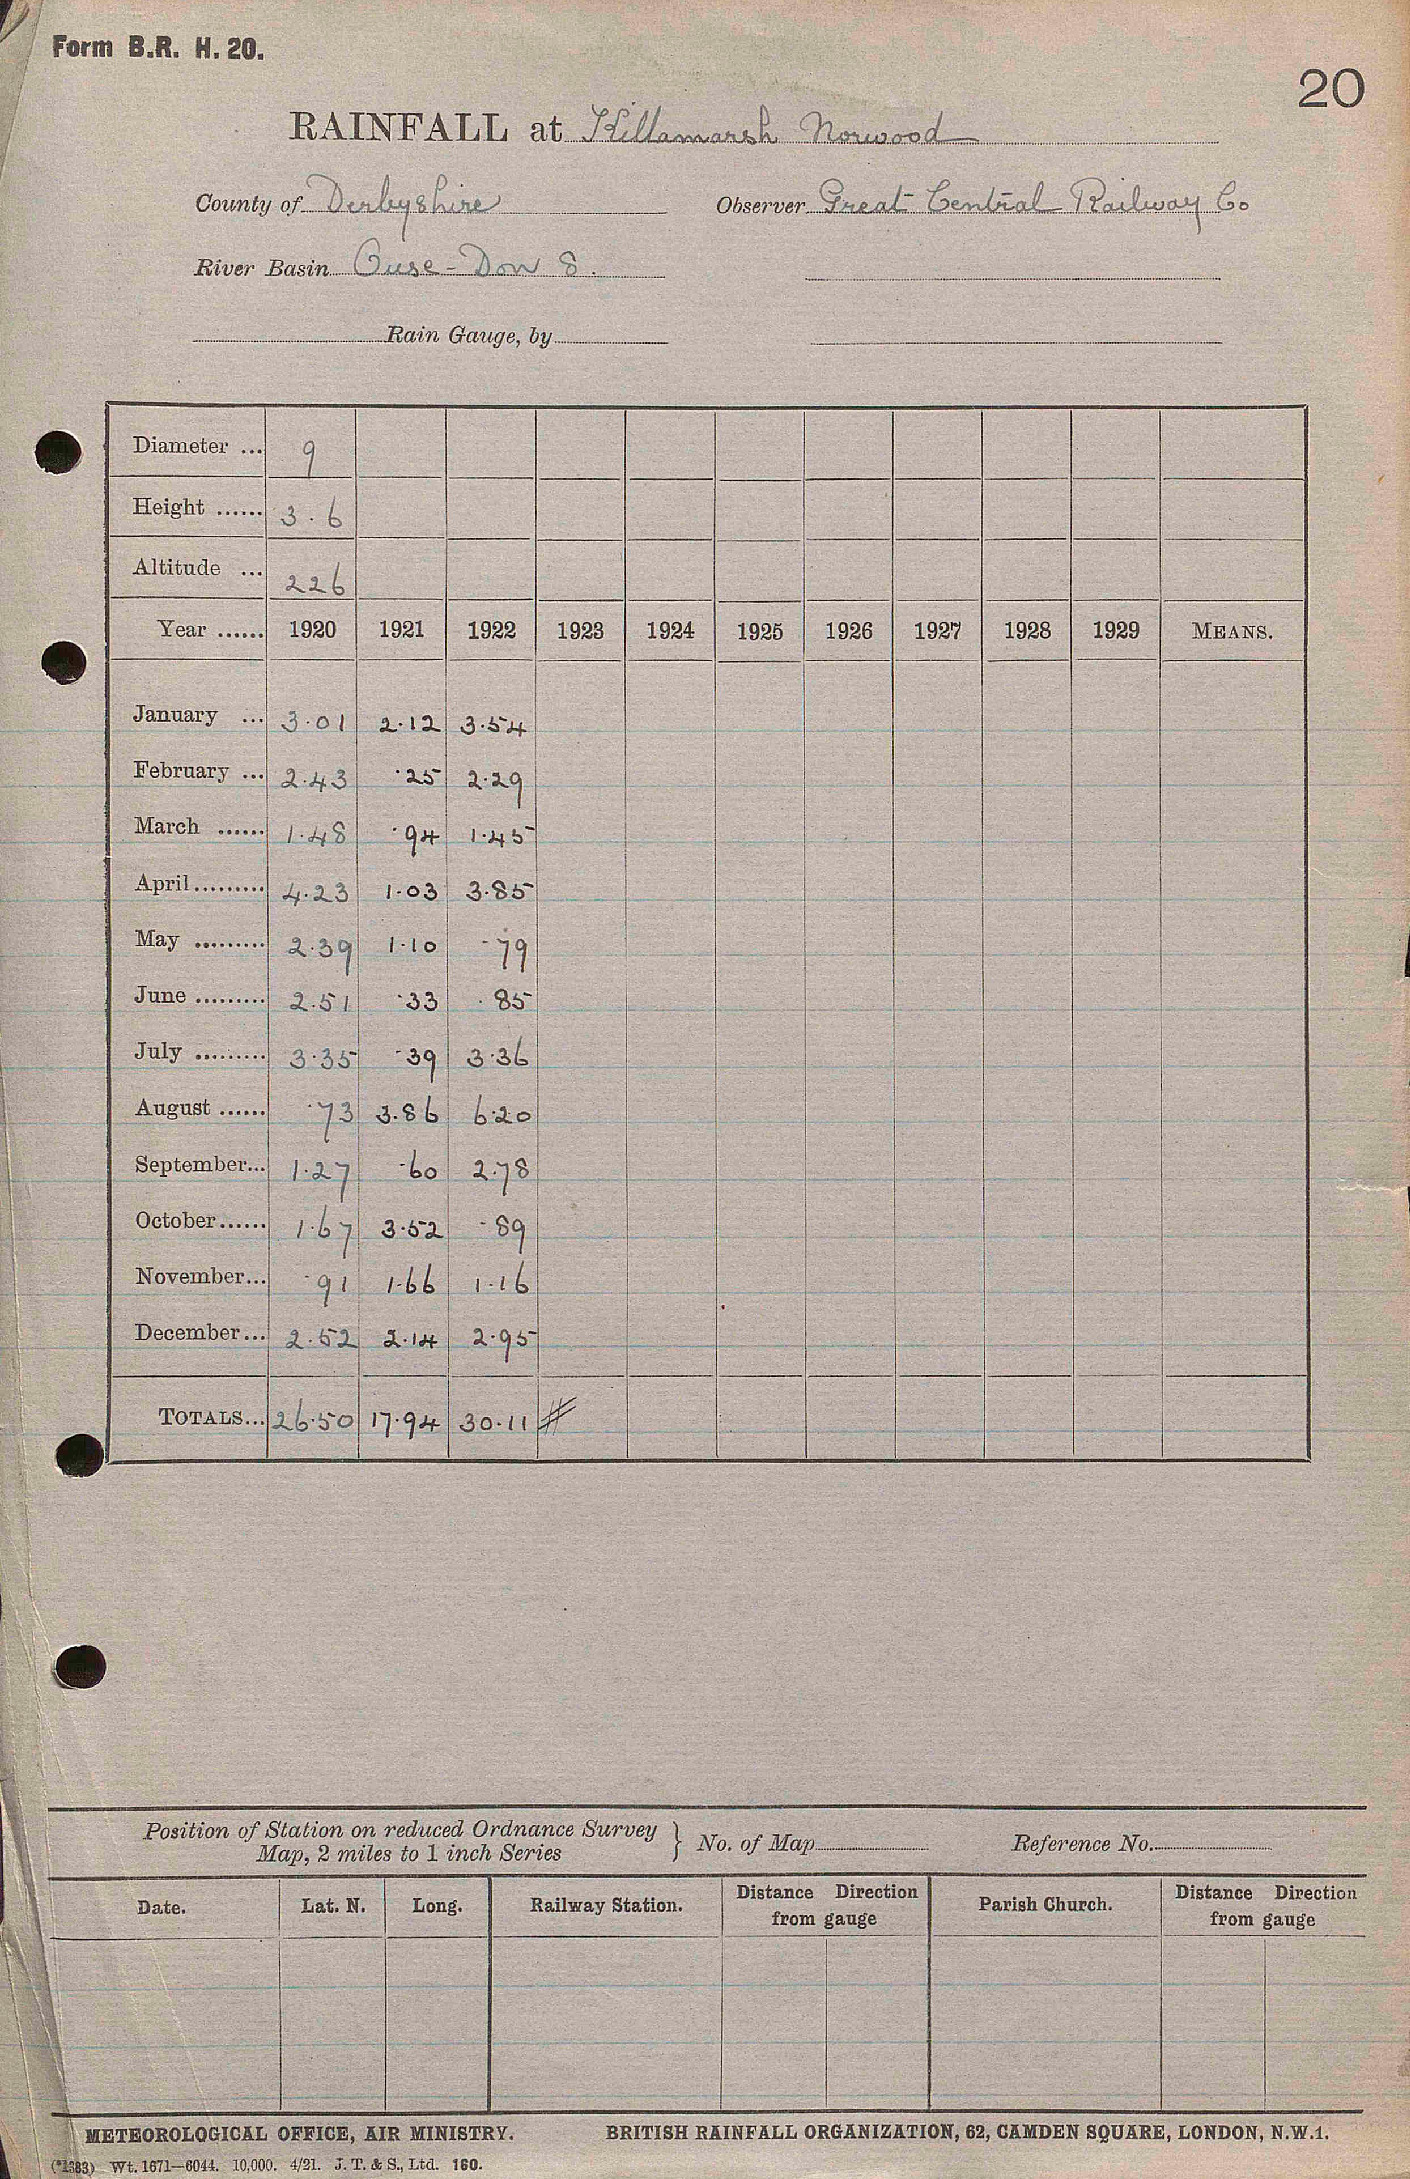 Form B.R. H. 20.
20
RAINFALL at Killamarsh Norwood
County of Derbyshire Observer Great Central Railway Co
River Basin Ouse - Don 8.
Rain Gauge, by
Diameter ... 9
Height ...... 3.6
Altitude ... 226
Year ...... 1920 1921 1922 1923 1924 1925 1926 1927 1928 1929 MEANS.
January ... 3.01 2.12 3.54
February ... 2.43 .25 2.29
March ...... 1.48 .94 1.45
April......... 4.23 1.03 3.85
May ......... 2.39 1.10 .79
June ......... 2.51 .33 .85
July ......... 3.35 .39 3.36
August ...... .73 3.86 6.20
September... 1.27 .60 2.78
October...... 1.67 3.52 .89
November... .91 1.66 1.16
December... 2.52 2.14 2.95
TOTALS... 26.50 17.94 30.11 #
Position of Station on reduced Ordnance Survey
Map, 2 miles to 1 inch Series } No. of Map Reference No.
Date. Lat. N. Long. Railway Station. Distance Direction from gauge Parish Church. Distance Direction from gauge
METEOROLOGICAL OFFICE, AIR MINISTRY. BRITISH RAINFALL ORGANIZATION, 62, CAMDEN SQUARE, LONDON, N.W.1.
(*1383) Wt. 1671—6044. 10,000. 4/21. J. T. & S., Ltd. 160.